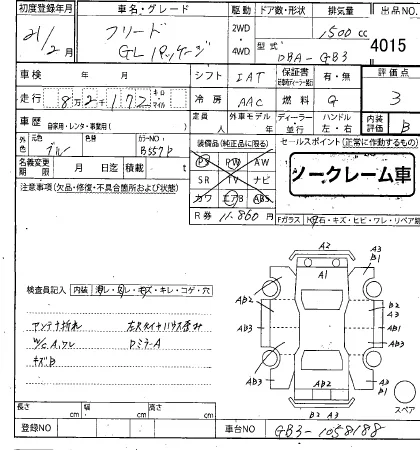 初度登録年月 車名・グレード 駆動 ドア数・形状 排気量 出品NO.
21/2月 フリード GLパッケージ 2WD・4WD 1500cc 4015
型式 DBA-GB3
車検 年 月 シフト IAT 保証書 有・無 評価点
走行 8万2千172 キロ マイル 冷房 AAC 燃料 G 3
車歴 自家用・レンタ・事業用( ) 定員 人 外車モデル 年 ディーラー・並行 ハンドル 左・右 内装評価 B
外色 元色 ブルー 色替 カラーNO. B557P 装備品(純正品に限る) セールスポイント(正常に作動するもの)
名義変更期限 月 日迄 積載 t PS PW AW
SR TV ナビ
カワ エアB ABS
ノークレーム車
注意事項(欠品・修復・不具合箇所および状態)
R券 11,860円 Fガラス 飛石・キズ・ヒビ・ワレ・リペア跡
検査員記入 内装 ヨゴレ・スレ・キズ・キレ・コゲ・穴
アンテナ折れ
W/C A,ワレ DミラーA
キズB
A2
A1
A3
B1
AB2
AB2
B2
A3
AB3
AB3
AB3
AB3
A3
B1
B2 A3
スペア
長さ cm 幅 cm 高さ cm
登録NO 車台NO GB3-1058188